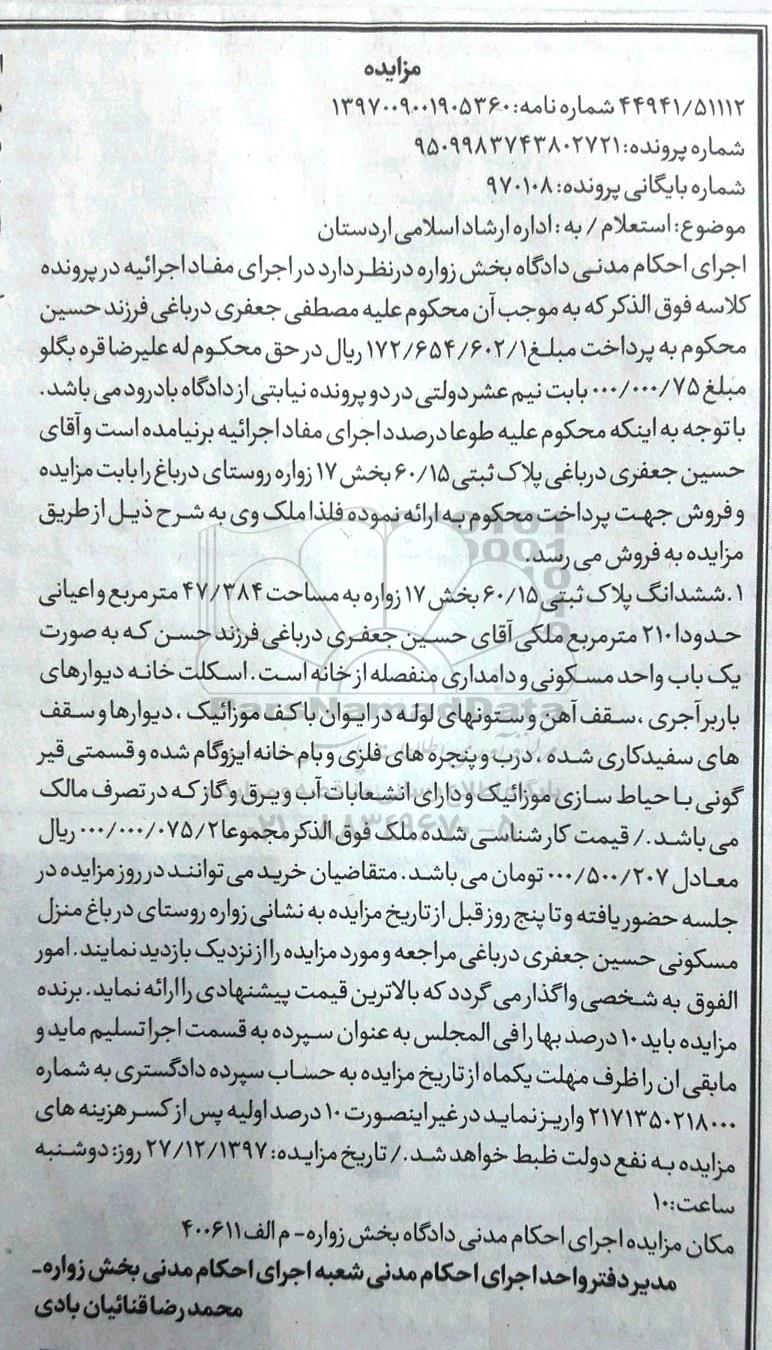 مزایده
۴۴۹۴۱/۵۱۱۱۲ شماره نامه: ۱۳۹۷۰۰۹۰۰۱۹۰۵۳۶۰
شماره پرونده: ۹۵۰۹۹۸۳۷۴۳۸۰۲۷۲۱
شماره بایگانی پرونده: ۹۷۰۱۰۸
موضوع: استعلام / به : اداره ارشاد اسلامی اردستان
اجرای احکام مدنی دادگاه بخش زواره درنظر دارد در اجرای مفاد اجرائیه در پرونده
کلاسه فوق الذکر که به موجب آن محکوم علیه مصطفی جعفری درباغی فرزند حسین
محکوم به پرداخت مبلغ ۱۷۲/۶۵۴/۶۰۲/۱ ریال در حق محکوم له علیرضا قره بگلو
مبلغ ۰۰۰/۰۰۰/۷۵ بابت نیم عشر دولتی در دو پرونده نیابتی از دادگاه بادرود می باشد.
با توجه به اینکه محکوم علیه طوعا درصدد اجرای مفاد اجرائیه برنیامده است و آقای
حسین جعفری درباغی پلاک ثبتی ۶۰/۱۵ بخش ۱۷ زواره روستای درباغ را بابت مزایده
و فروش جهت پرداخت محکوم به ارائه نموده فلذا ملک وی به شرح ذیل از طریق
مزایده به فروش می رسد.
۱.ششدانگ پلاک ثبتی ۶۰/۱۵ بخش ۱۷ زواره به مساحت ۴۷/۳۸۴ مترمربع و اعیانی
حدودا ۲۱۰ مترمربع ملکی آقای حسین جعفری درباغی فرزند حسن که به صورت
یک باب واحد مسکونی و دامداری منفصله از خانه است. اسکلت خانه دیوارهای
باربر آجری ، سقف آهن و ستونهای لوله در ایوان با کف موزائیک ، دیوارها و سقف
های سفیدکاری شده ، درب و پنجره های فلزی و بام خانه ایزوگام شده و قسمتی قیر
گونی با حیاط سازی موزائیک و دارای انشعابات آب و برق و گاز که در تصرف مالک
می باشد./ قیمت کارشناسی شده ملک فوق الذکر مجموعا ۰۰۰/۰۰۰/۰۷۵/۲ ریال
معادل ۰۰۰/۵۰۰/۲۰۷ تومان می باشد. متقاضیان خرید می توانند در روز مزایده در
جلسه حضور یافته و تا پنج روز قبل از تاریخ مزایده به نشانی زواره روستای درباغ منزل
مسکونی حسین جعفری درباغی مراجعه و مورد مزایده را از نزدیک بازدید نمایند. امور
الفوق به شخصی واگذار می گردد که بالاترین قیمت پیشنهادی را ارائه نماید. برنده
مزایده باید ۱۰ درصد بها را فی المجلس به عنوان سپرده به قسمت اجرا تسلیم ماید و
مابقی ان را ظرف مهلت یکماه از تاریخ مزایده به حساب سپرده دادگستری به شماره
۲۱۷۱۳۵۰۲۱۸۰۰۰ واریز نماید در غیر اینصورت ۱۰ درصد اولیه پس از کسر هزینه های
مزایده به نفع دولت ظبط خواهد شد./ تاریخ مزایده: ۲۷/۱۲/۱۳۹۷ روز: دوشنبه
ساعت: ۱۰
مکان مزایده اجرای احکام مدنی دادگاه بخش زواره- م الف ۴۰۰۶۱۱
مدیر دفتر واحد اجرای احکام مدنی شعبه اجرای احکام مدنی بخش زواره-
محمد رضا قنائیان بادی
ParsNamadData